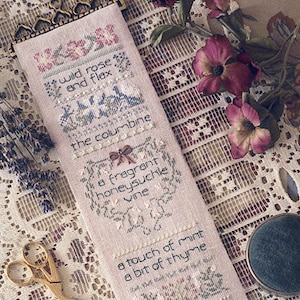 wild rose
and flax
the columbine
a fragrant
honeysuckle
vine
a touch of mint
a bit of thyme